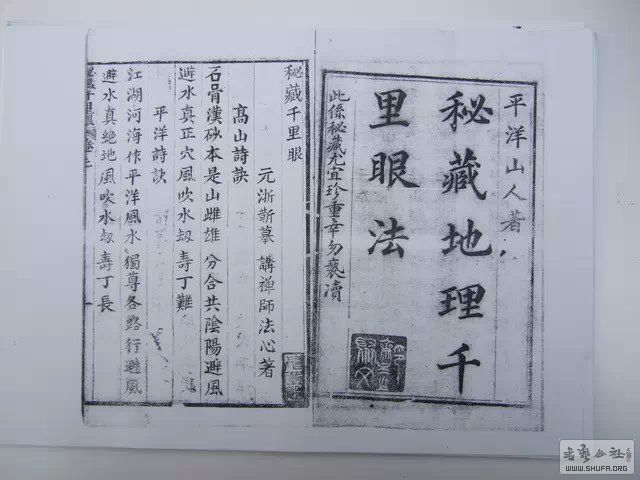 平洋山人著
秘藏地理千
里眼法
此係秘藏尤宜珍重幸勿褻瀆
秘藏千里眼
元浙蘄摹講禪師法心著
高山詩訣
石骨漢砂本是山雌雄分合共陰陽避風
避水真正穴風吹水刼壽丁難
平洋詩訣
江湖河海作平洋風水獨尊各路行避風
避水真絕地風吹水刼壽丁長
WWW.SHUFA.ORG